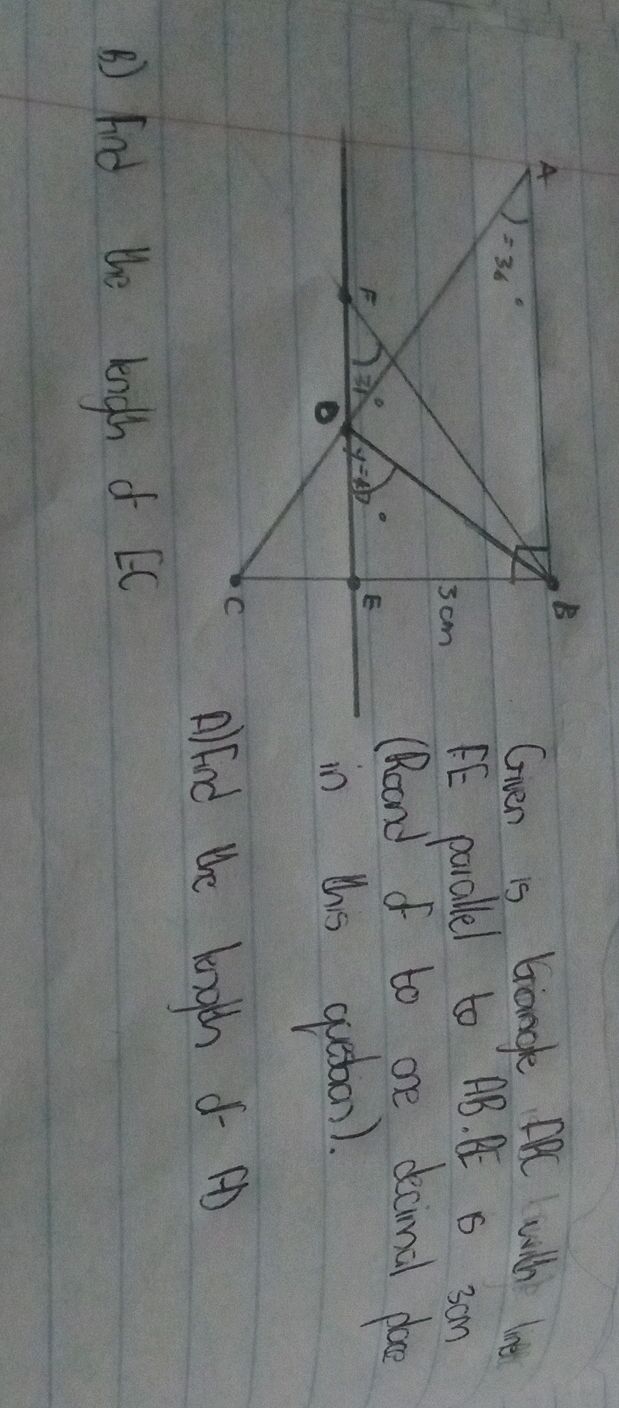 A
= 36°
B
F
= 71°
D
E
3 cm
C
Given is triangle ABC with line
FE parallel to AB. BE is 3cm
(Round of to one decimal place
in this question).
A) Find the length of AD
B) Find the length of EC